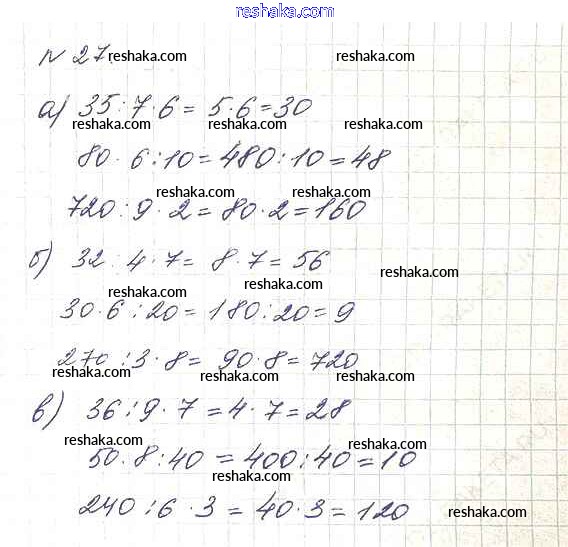 reshaka.com
№ 27 reshaka.com
а) 35 : 7 · 6 = 5 · 6 = 30
reshaka.com reshaka.com
80 · 6 : 10 = 480 : 10 = 48
reshaka.com reshaka.com
720 : 9 · 2 = 80 · 2 = 160
reshaka.com
б) 32 : 4 · 7 = 8 · 7 = 56
reshaka.com
reshaka.com reshaka.com
30 · 6 : 20 = 180 : 20 = 9
270 : 3 · 8 = 90 · 8 = 720
reshaka.com reshaka.com reshaka.com
в) 36 : 9 · 7 = 4 · 7 = 28
reshaka.com reshaka.com
50 · 8 : 40 = 400 : 40 = 10
reshaka.com
240 : 6 · 3 = 40 · 3 = 120
reshaka.com reshaka.com